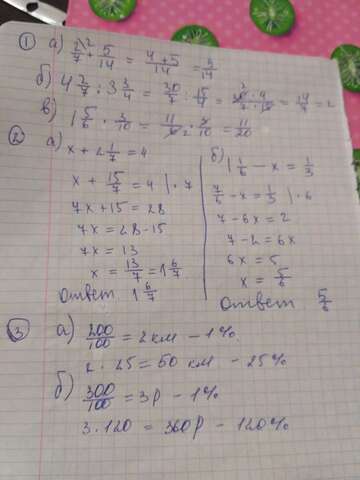 1 а) 2/7 + 5/14 = (4+5)/14 = 9/14
б) 4 2/7 : 3 3/4 = 30/7 : 15/4 = (30 · 4)/(7 · 15) = 14/7 = 2
в) 1 5/6 · 3/10 = 11/6 · 3/10 = 11/20
2 а) x + 2 1/7 = 4
x + 15/7 = 4 | · 7
7x + 15 = 28
7x = 28 - 15
7x = 13
x = 13/7 = 1 6/7
Ответ 1 6/7
б) 1 1/6 - x = 1/3
7/6 - x = 1/3 | · 6
7 - 6x = 2
7 - 2 = 6x
6x = 5
x = 5/6
Ответ 5/6
3 а) 200/100 = 2 км - 1%
2 · 25 = 50 км - 25%
б) 300/100 = 3р - 1%
3 · 120 = 360р - 120%